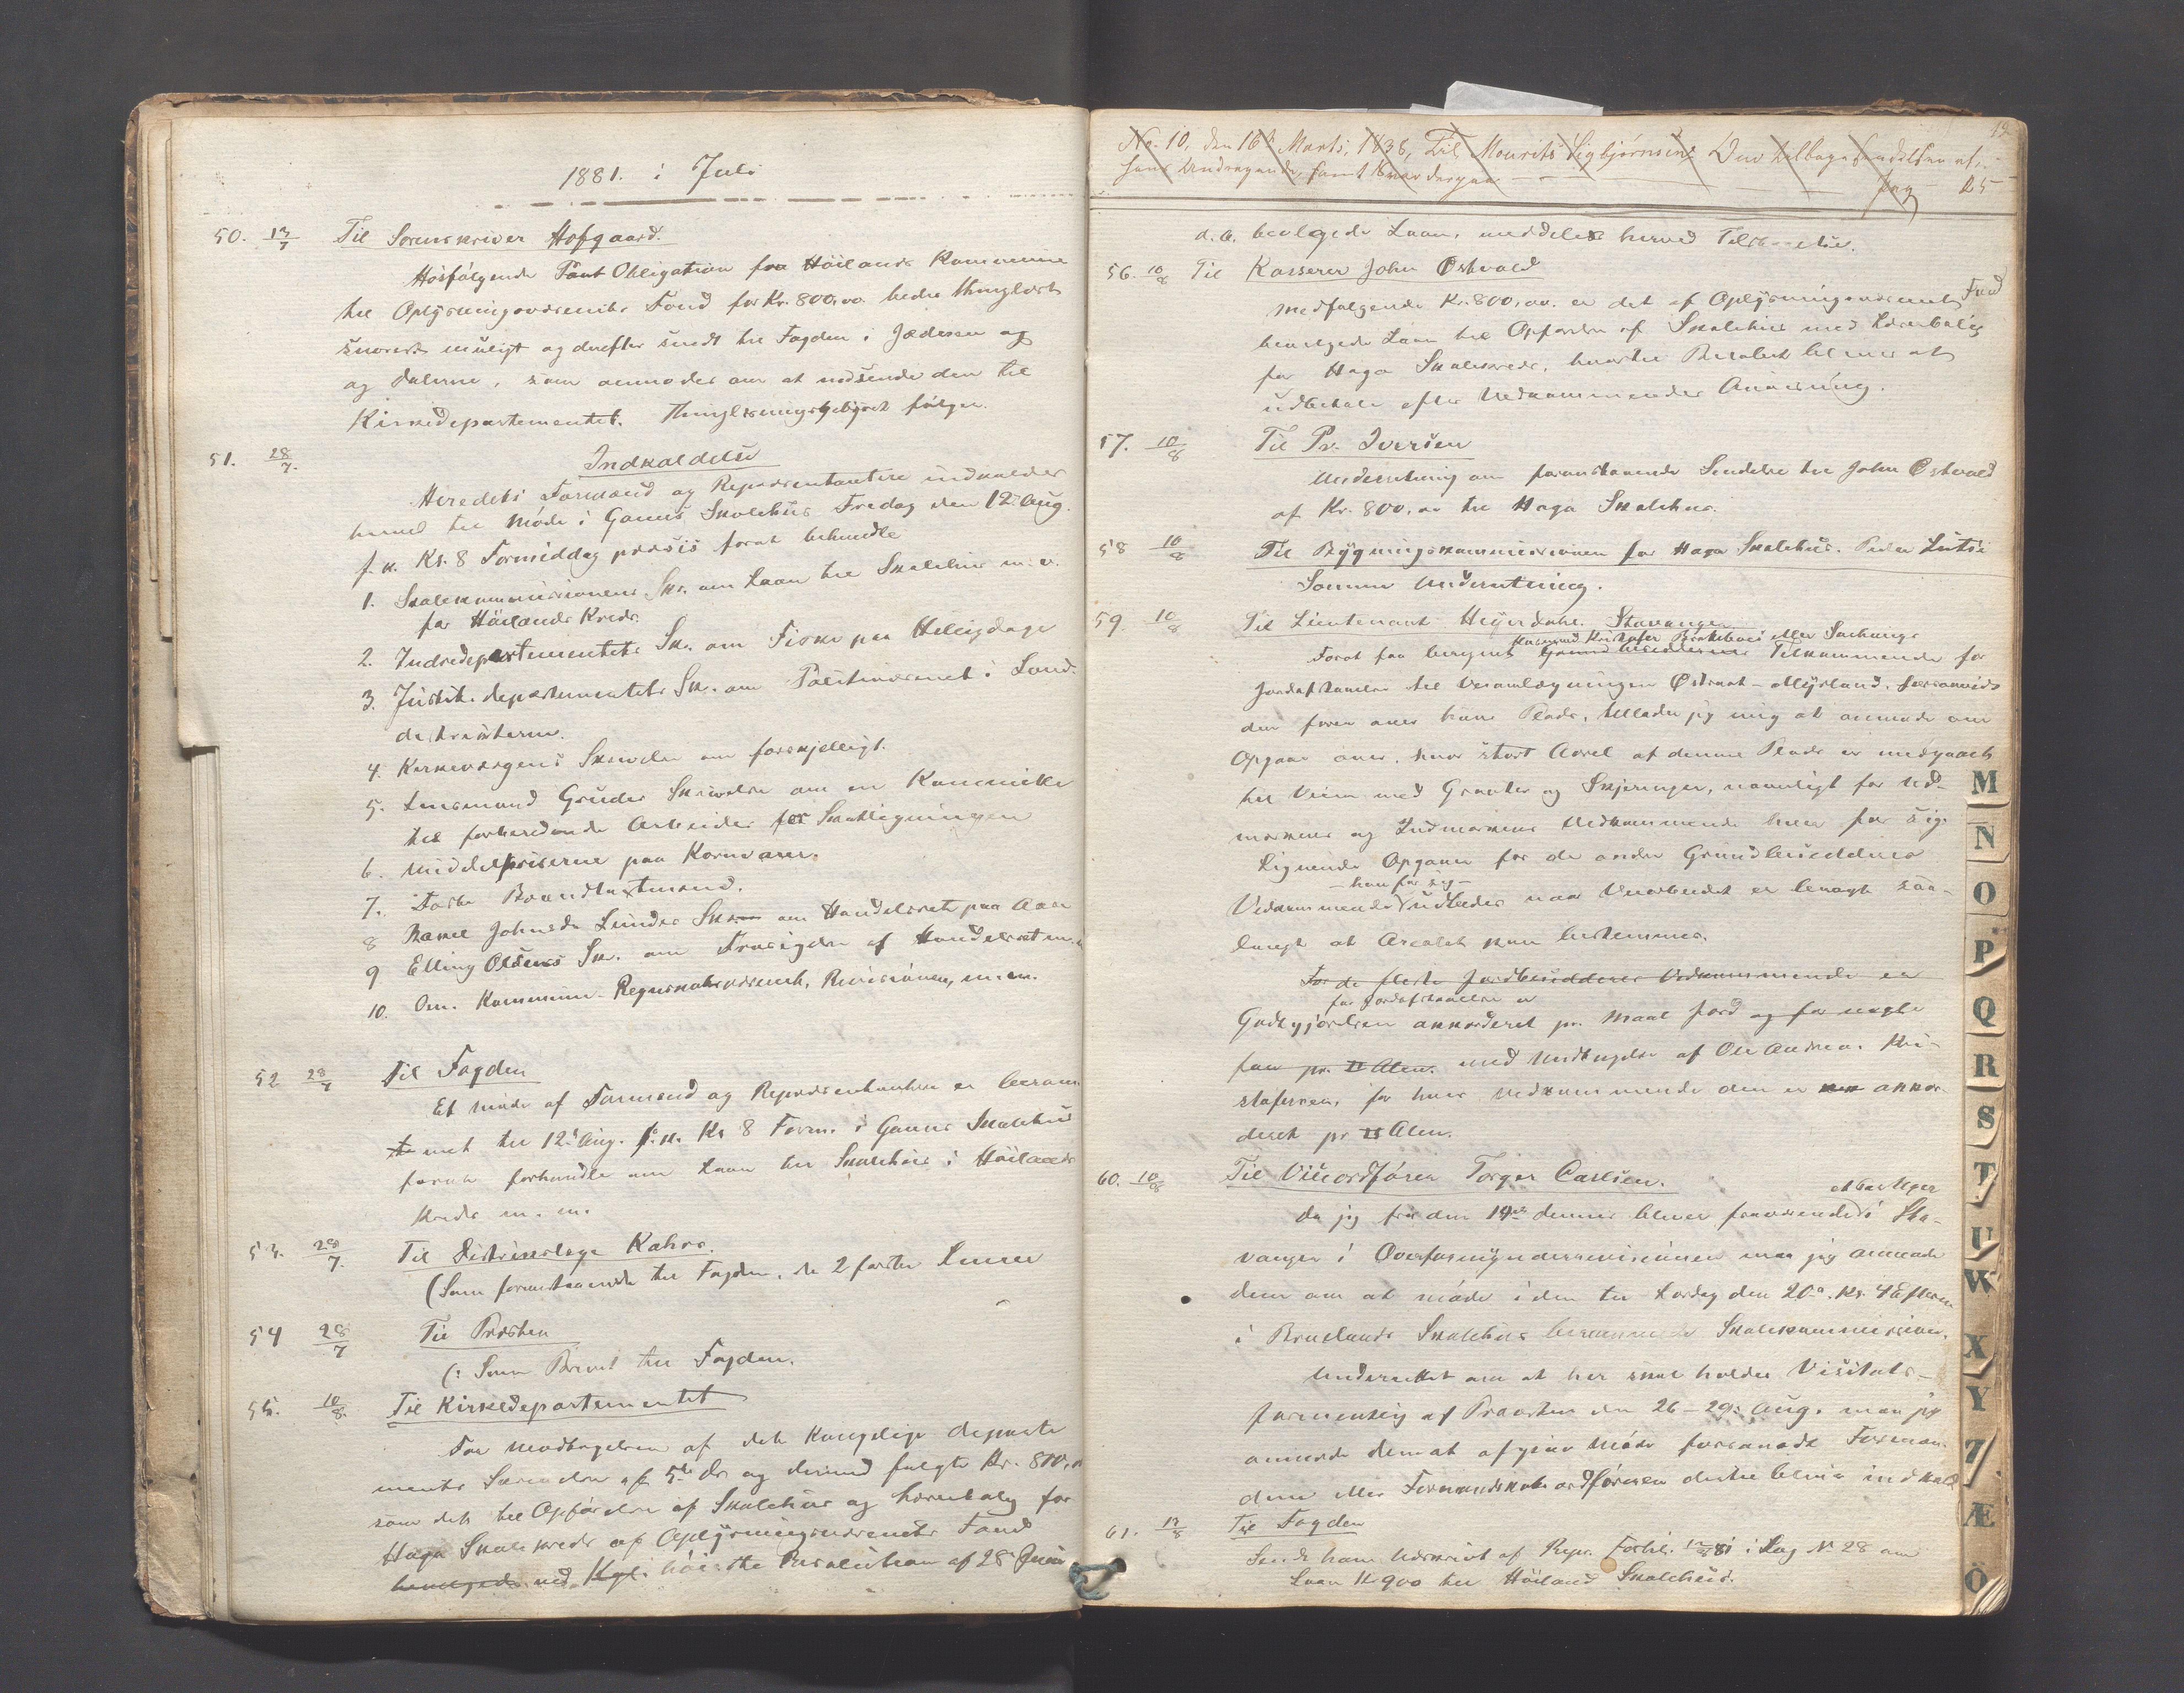 1881. i Juli
50. 13/7 Til Sorenskriver Hofgaard.
Hosfølgende Pant Obligation fra Høilands Kommune
til Oplysningsvæsenets Fond for Kr. 800,00 bedes thinglæst
snarest muligt og derefter sendt til Fogden i Jæderen og
og Dalerne, som anmodes om at nedsende den til
Kirkedepartementet. Thinglæsningsgebyret følger.
51. 28/7. Indkaldelse
Heredets Formænd og Repræsentantere indkaldes
herved til Møde i Gauns Skolehus Fredag den 12te Aug.
f. k. Kl. 8 Formiddag præsis forat behandle
1. Skolekommissionens Skr. om Laan til Skolehus m. v.
for Høilands Kreds.
2. Indredepartementets Skr. om Fiske paa Helligdage
3. Justits. departementets Skr. om Politivæsenet i Land-
distrikterne.
4. Kirkevergens Skrivelse om forskjelligt.
5. Lensmand Gruder Skrivelse om en Kommitte
til forberedende Arbeider for Skatligningen
6. Middelpriserne paa Kornvarer.
7. Taste Brandtaxtmænd.
8 Rasmus Johnsen Lundes Skr. om Handelsret paa Aase
9 Elling Olsens Skr. om Frasigelse af Handelsret m. m
10. Om Kommune Regnskabsvæsenet, Revisionen, m. m.
52 28/7 Til Fogden
Et Møde af Formænd og Repræsentanter er beram-
met til 12te Aug. f. k. Kl 8 Form. i Gauns Skolehus
forat forhandle om Laan til Skolehus i Høilands
Kreds m. m.
53. 28/7. Til Distriktslæge Kahrs.
(Som foranstaaende til Fogden, de 2 første Linier
54 28/7 Til Præsten
(: Som Brevet til Fogden.
55. 10/8. Til Kirkedepartementet
For Modtagelsen af det Kongelige departe
ments Skrivelse af 5te ds og dermed fulgte Kr. 800,00
som det til Opførelse af Skolehus og Lærerbolig for
Haga Skolekreds af Oplysningsvæsenets Fond
bevilgede ved Kgl. høieste Resolution af 28 Juni
No. 10, den 16de Marts, 1838, Til Mourits Sigbjørnsens Den tilbagesendelse af,
hans Andragende, samt Svar derpaa Pag 25
12
d. A. bevilgede Laan, meddeles herved Tilstaaelse.
56. 10/8 Til Kasserer John Østvold
Medfølgende Kr. 800,00. er det af Oplysningsvæsenets Fond
bevilgede Laan til Opførelse af Skolehus med Lærerbolig
for Haga Skolekreds, hvorfor Beløbet bliver at
udbetale efter Vedkommendes Anvisning.
57. 10/8 Til Pr. Iversen
Underretning om foranstaaende Sendelse til John Østvold
af Kr. 800.00 til Haga Skolehus.
58 10/8 Til Bygningskommissionen for Haga Skolehus. Peder Lutsi
Samme Underretning.
59. 10/8 Til Lieutenant Heyerdahl. Stavanger
Husmand Kristofer eller
Forat faa beregnet Grundbesiddernes Tilkommende for
Jordafstaaelse til Veiomlægningen Østraat - Myrland. forsaavidt
den fører over hans Plads, tillader jeg mig at anmode om
Opgave over, hvor stort Areal af denne Plads er medgaaet
til Veien med Grøvter og Skjeringer, navnligt for Ud-
markens og Indmarkens Vedkommende hver for sig.
Lignende Opgaver for de andre Grundbesidderes
- hver for sig -
Vedkommende udbedes naar Veiarbeidet er bragt saa-
langt at Arealet kan bestemmes.
For de fleste Jordbesidderes Vedkommende er
for Jordafstaaelse er
Godtgjørelsen akkorderet pr. Maal Jord og for nogle
faa pr. □ Alen. med Undtagelse af Ole Andreas Kri-
stofersen, for hvis Vedkommende den er akkor-
deret pr □ Alen.
60. 10/8 Til Viceordfører Torger Carlsen.
Da jeg fra den 19de dennes bliver fraværende i Sta-
vanger i Overformynderrevisionen maa jeg anmode
dem om at møde i den til Lørdag den 20de. Kl. 4 Efterm
i Bruelands Skolehus berammede Skolekommission.
Underrettet om at her skal holdes Visitats-
forretning af Provsten den 26 - 29. Aug. maa jeg
anmode dem at afgive Møde forsaavidt Forman-
dene eller Formandskabsordføreren dertil blive indkald
61. 13/8 Til Fogden
Sendt ham Udskrift af Repr. Forhl. 12/8 81 i Sag N. 28 om
Laan Kr 900 til Høiland Skolehus.
M
N
O
P
Q
R
S
T
U
W
X
Y
Z
Æ
Ö